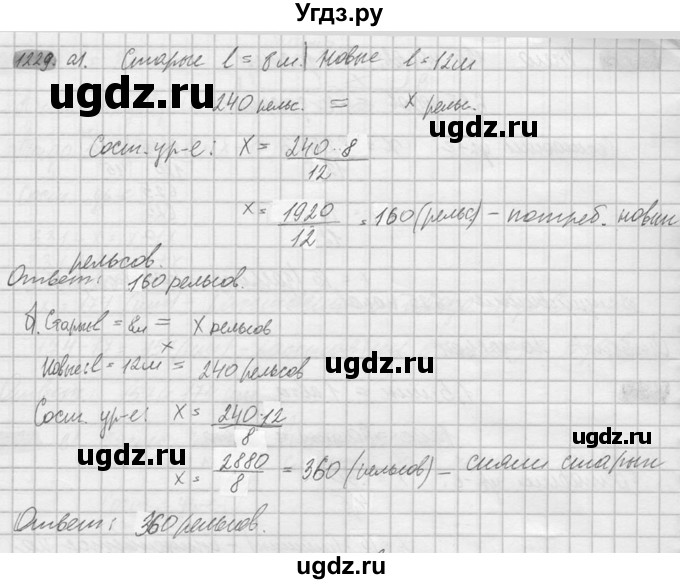 Угдз.ру
1229. а1. Старые l = 8 м. | Новые l = 12 м
240 рельс. = х рельс.
Сост. ур-е: х = 240·8 / 12
х = 1920 / 12 = 160 (рельс) – потреб. новых
рельсов.
Ответ: 160 рельсов.
б. Старые l = 8м = х рельсов
х
Новые: l = 12м = 240 рельсов
Сост. ур-е: х = 240·12 / 8
х = 2880 / 8 = 360 (рельсов) – сняли старых
Ответ: 360 рельсов.
ugdz.ru
ugdz.ru
ugdz.ru
ugdz.ru
ugdz.ru
ugdz.ru
ugdz.ru
ugdz.ru
ugdz.ru